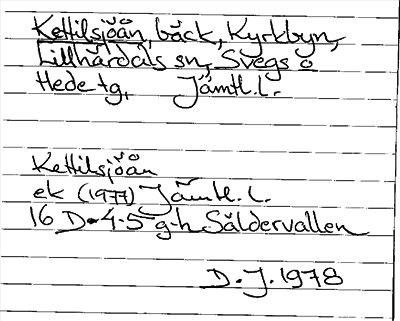 Kettilsjöån, bäck, Kyrkbyn,
Lillhärdals sn, Svegs o
Hede tg, Jämtl. l.
Kettilsjöån
ek (1977) Jämtl. l.
16 D-4-5 g-h Säldervallen
D. J. 1978